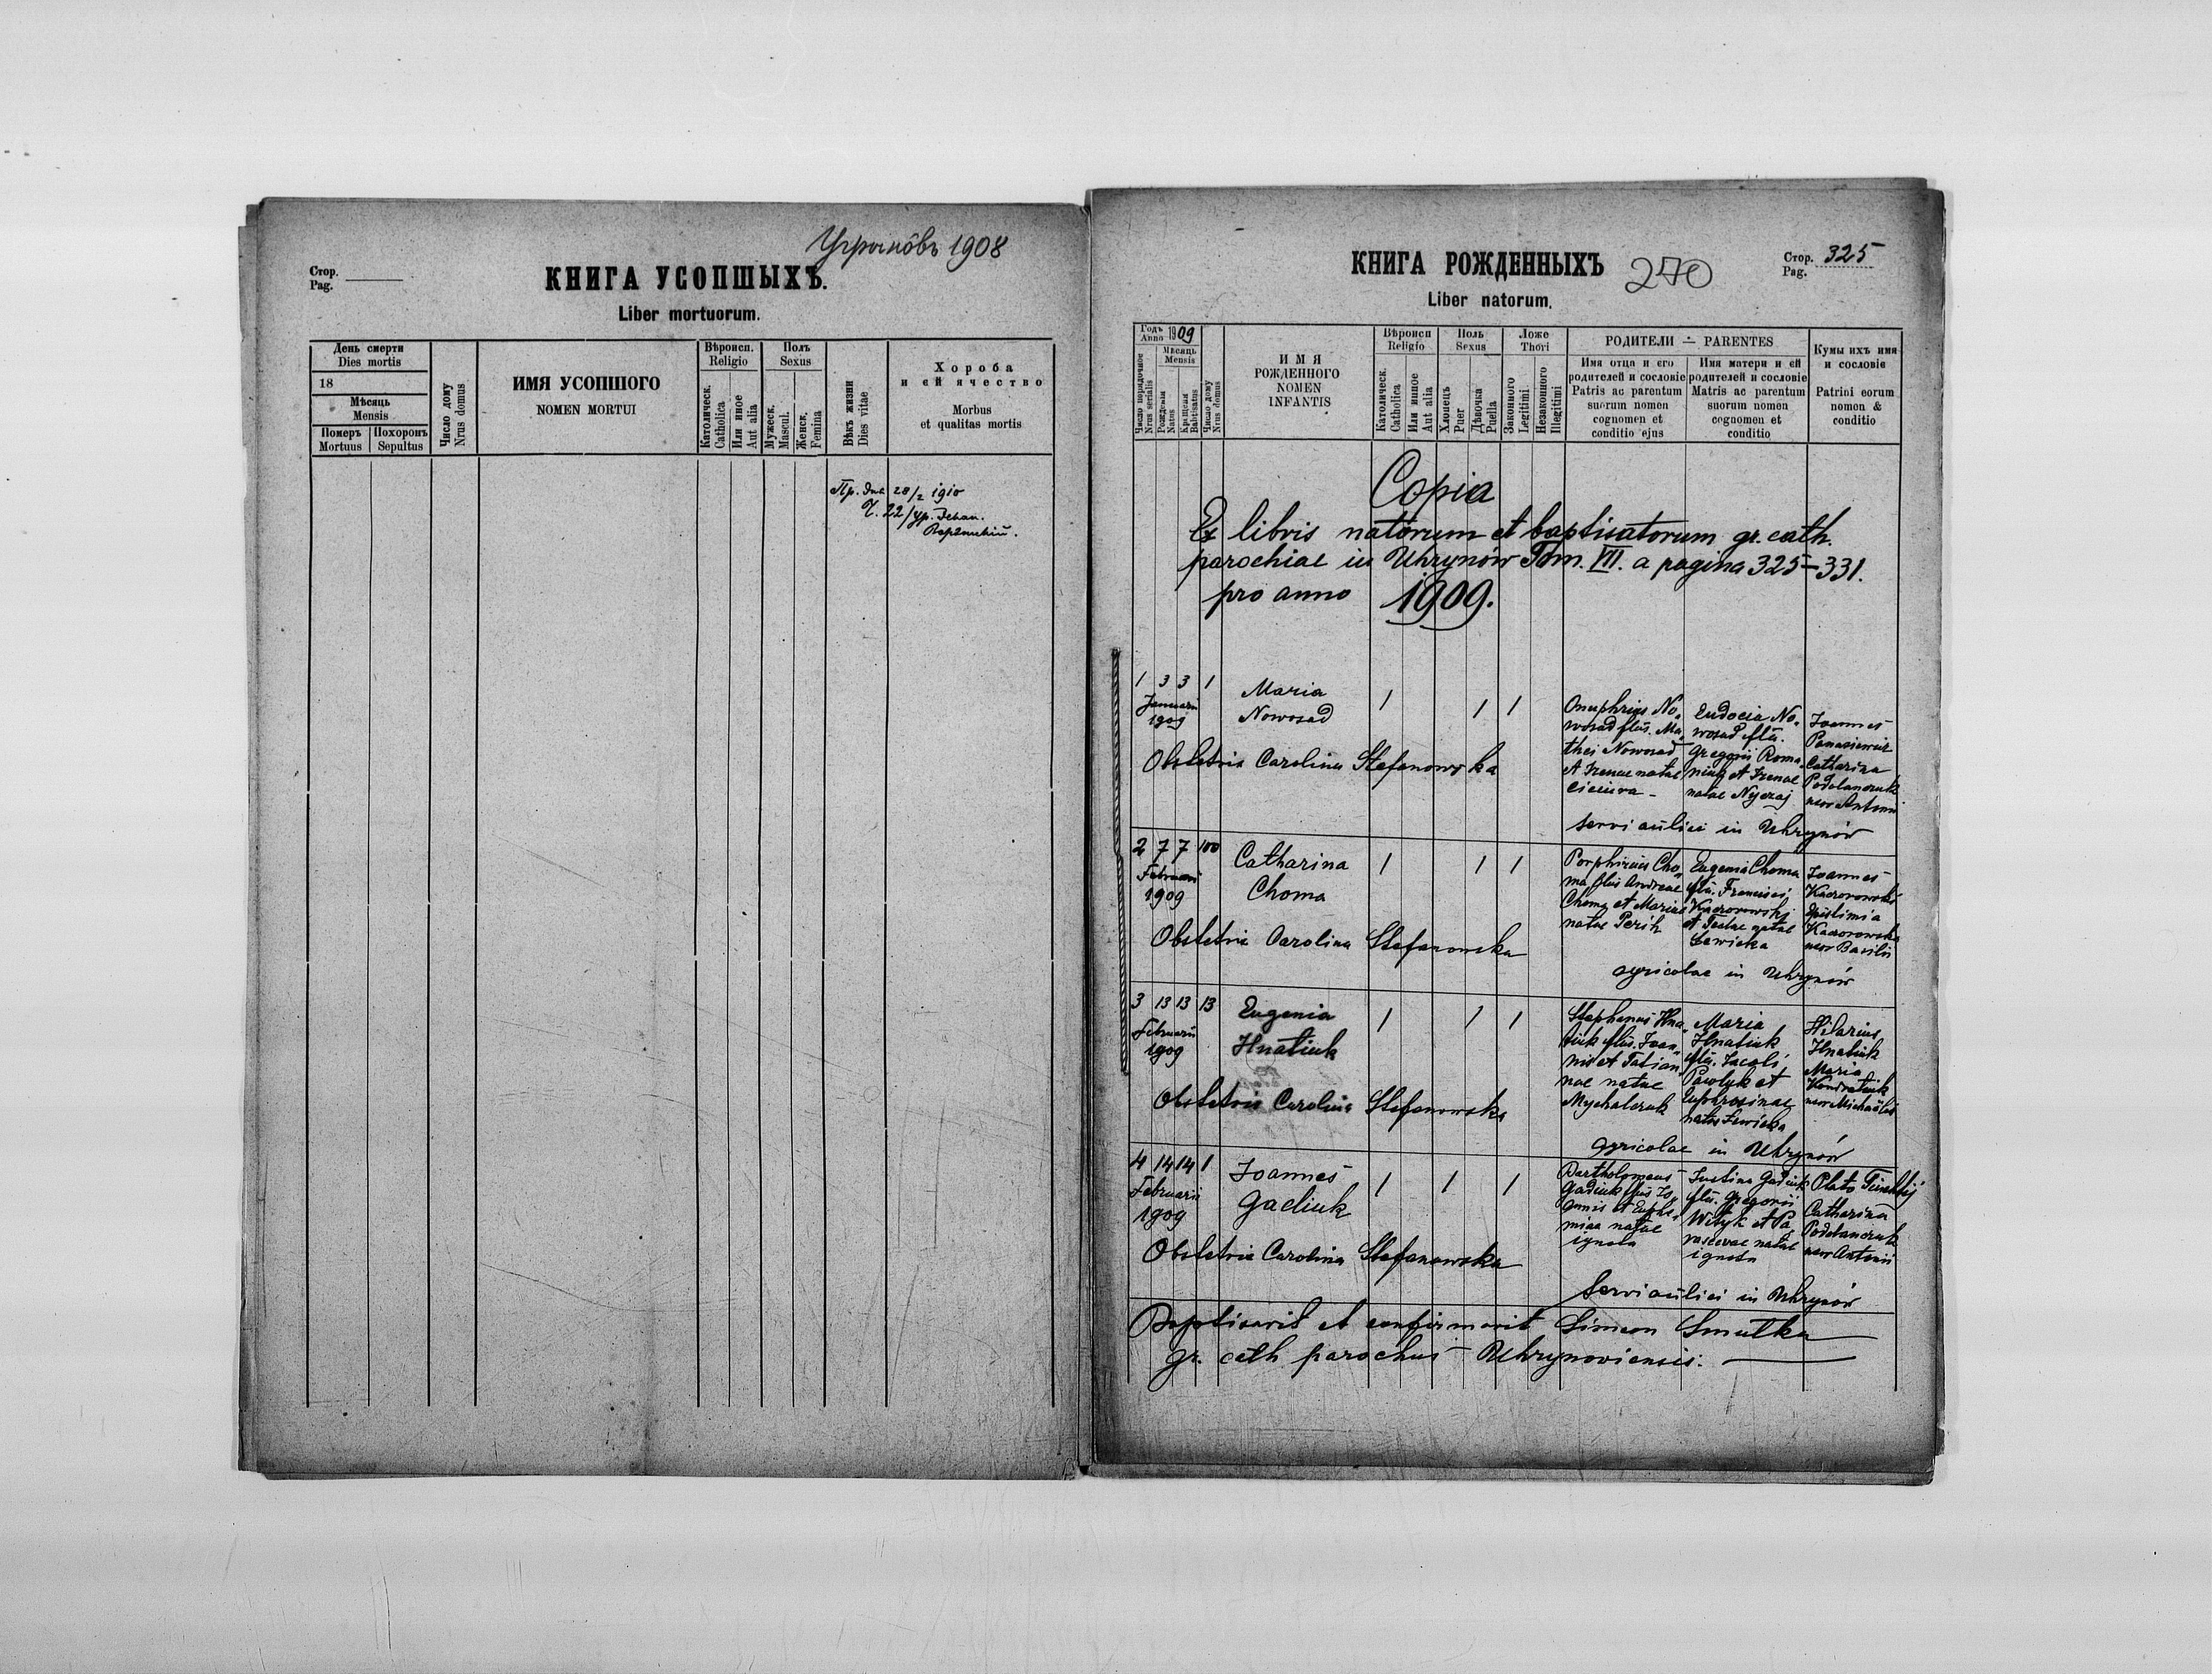 Угрыновъ 1908
Стор.
Pag.
КНИГА УСОПШЫХЪ.
Liber mortuorum.
День смерти
Dies mortis
18
Мѣсяць
Mensis
Померъ
Mortuus
Похоронъ
Sepultus
Число дому
Nrus domus
ИМЯ УСОПШОГО
NOMEN MORTUI
Вѣроисп.
Religio
Католическ.
Catholica
Или иное
Aut alia
Полъ
Sexus
Мужеск.
Mascul.
Женск.
Femina
Вѣкъ жизни
Dies vitae
Хороба
и ей ячество
Morbus
et qualitas mortis
Пр. дня 28/2 1910
Ч. 22/
КНИГА РОЖДЕННЫХЪ
270
Стор. 325
Pag.
Liber natorum.
Годъ
Anno 1909
Мѣсяць
Mensis
Число порядочное
Nrus serialis
Рожденія
Natus
Крещенія
Babtisatus
Число дому
Nrus domus
ИМЯ
РОЖДЕННОГО
NOMEN
INFANTIS
Вѣроисп
Religio
Католическ.
Catholica
Или инное
Aut alia
Полъ
Sexus
Хлопець
Puer
Дѣвочка
Puella
Ложе
Thori
Законного
Legitimi
Незаконного
Illegitimi
РОДИТЕЛИ — PARENTES
Имя отца и его
родителей и сословіе
Patris ac parentum
suorum nomen
cognomen et
conditio ejus
Имя матери и ей
родителей и сословіе
Matris ac parentum
suorum nomen
cognomen et
conditio
Кумы ихъ имя
и сословіе
Patrini eorum
nomen &
conditio
Copia
Ex libris natorum et baptisatorum gr. cath.
parochiae in Uhrynów Tom. VII. a pagina 325-331.
pro anno 1909.
1 3 3 1
Januarii
1909
Maria
Nowosad
1 1 1
Onuphrius No-
wosad flius. Ma-
thei Nowosad
et Irenae natae
Eudocia No-
wosad flia.
Gregorii Roma-
niuk et Irenae
natae Nyczaj
Joannes
Panasiewicz
Catharina
Podolanczuk
uxor Antonii
Obstetrix Carolina Stefanowska
servi aulici in Uhrynów
2 7 7 100
Februarii
1909
Catharina
Choma
1 1 1
Porphirius Cho-
ma flius Andreae
Choma et Mariae
natae Perih
Eugenia Choma
flia. Francisci
Kaczorowski
et Teclae natae
Lewicka
Joannes
Kaczorowski
Kaczorowska
uxor Basilii
Obstetrix Carolina Stefanowska
agricolae in Uhrynów
3 13 13 13
Februarii
1909
Eugenia
Hnatiuk
1 1 1
Stephanus Hna-
tiuk flius. Joan-
nis et Tatian-
nae natae
Mychalczuk
Maria
Hnatiuk
flia. Jacobi
Pawlyk et
Euphrosinae
natae Lewicka
Hilarius
Hnatiuk
Maria
Kondratiuk
uxor Michaëlis
Obstetrix Carolina Stefanowska
agricolae in Uhrynów
4 14 14 1
Februarii
1909
Joannes
Gadiuk
1 1 1
Bartholomeus
Gadiuk flius Jo-
annis et Euphe-
miae natae
ignota
Justina Gadiuk
flia. Gregorii
Wityk et Pa-
rascevae natae
ignota
Plato
Catharina
Podolanczuk
uxor Antonii
Obstetrix Carolina Stefanowska
servi aulici in Uhrynów
Baptisavit et confirmavit Simeon Smulka
gr. cath parochus Uhrynoviensis.